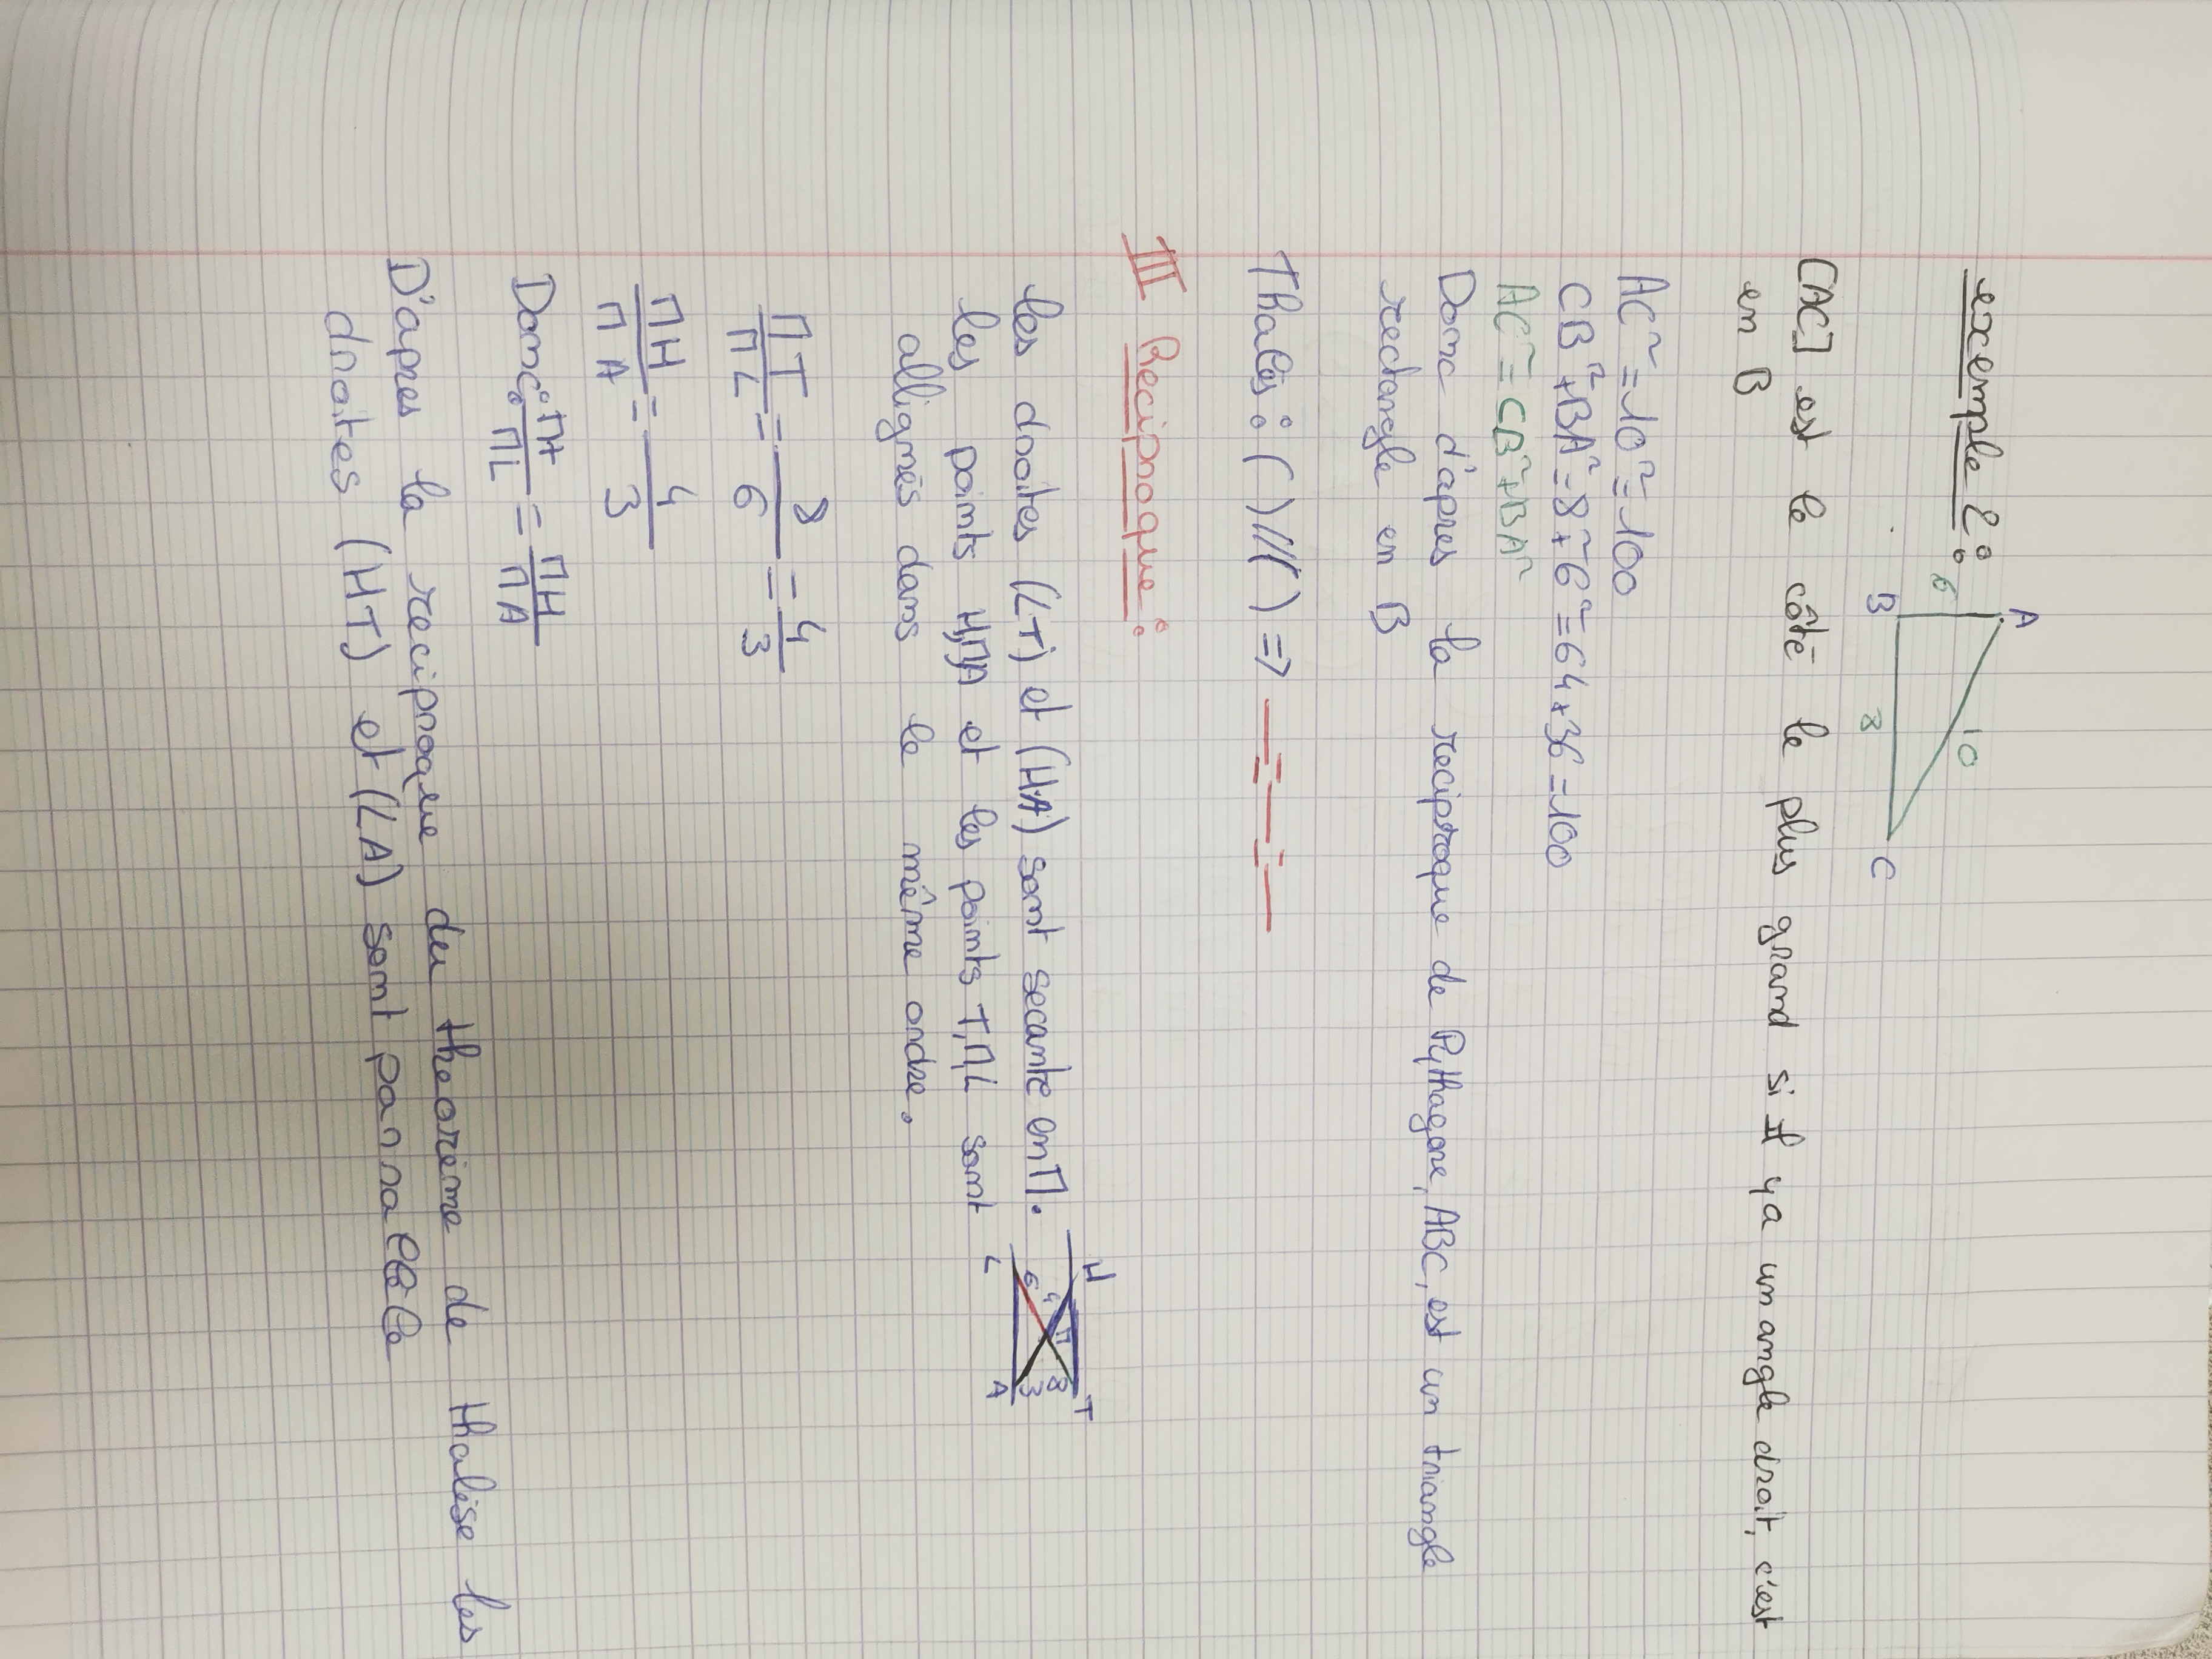 A
exemple 2:
10
6
B
8
C
[AC] est le côté le plus grand si Il y a un angle droit, c'est
en B
AC² = 10² = 100
CB² + BA² = 8² + 6² = 64 + 36 = 100
AC² = CB² + BA²
Donc d'apres la reciproque de Pythagore, ABC, est un triangle
rectangle en B
Thalès : ( ) // ( ) => — = — = —
III Reciproque :
H T
M
4 8
6 3
L A
les droites (LT) et (HA) sont secante en M.
les points H,M,A et les points T,M,L sont
allignés dans le même ordre.
MT/ML = 8/6 = 4/3
MH/MA = 4/3
Donc : Mt/ML = MH/MA
D'apres la reciproque du theorème de thalèse les
droites (HT) et (LA) sont parrallèle